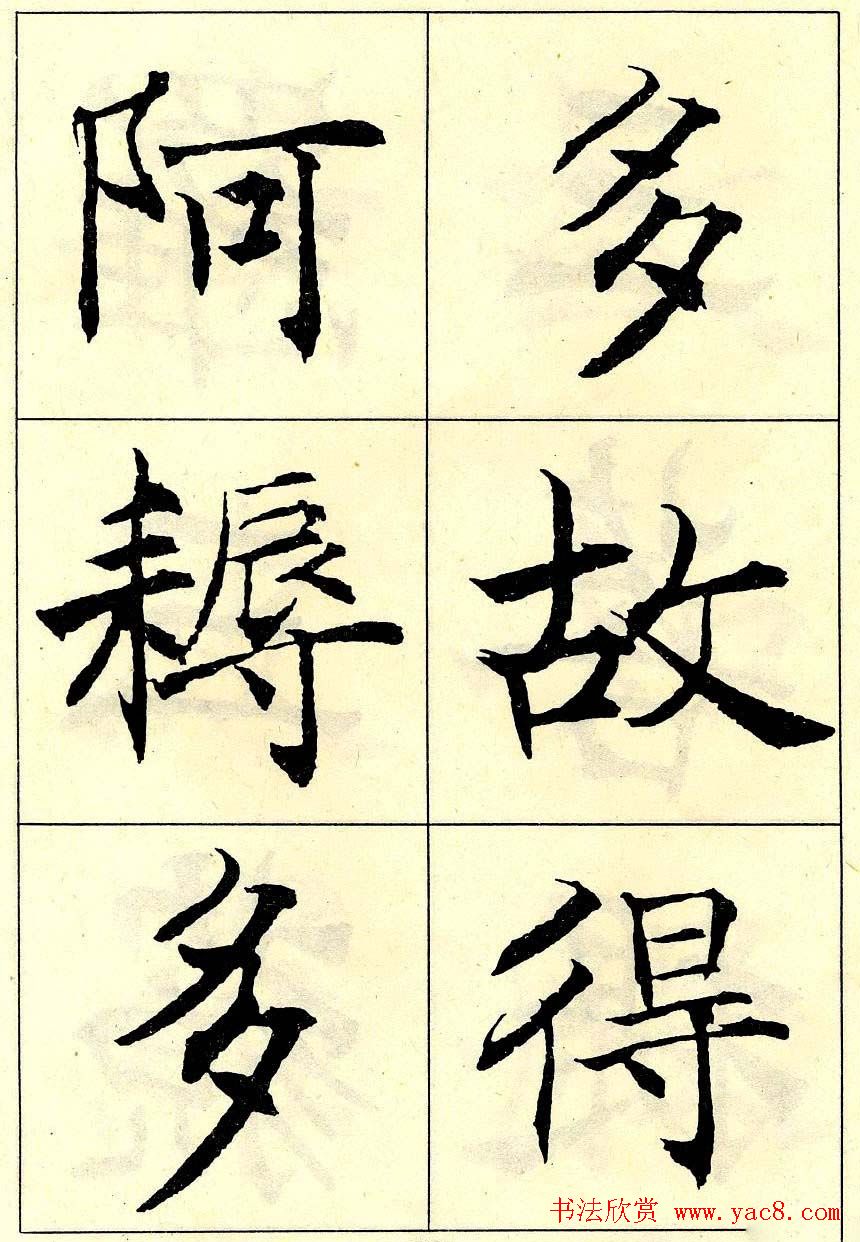 多故得
阿耨多
书法欣赏 www.yac8.com